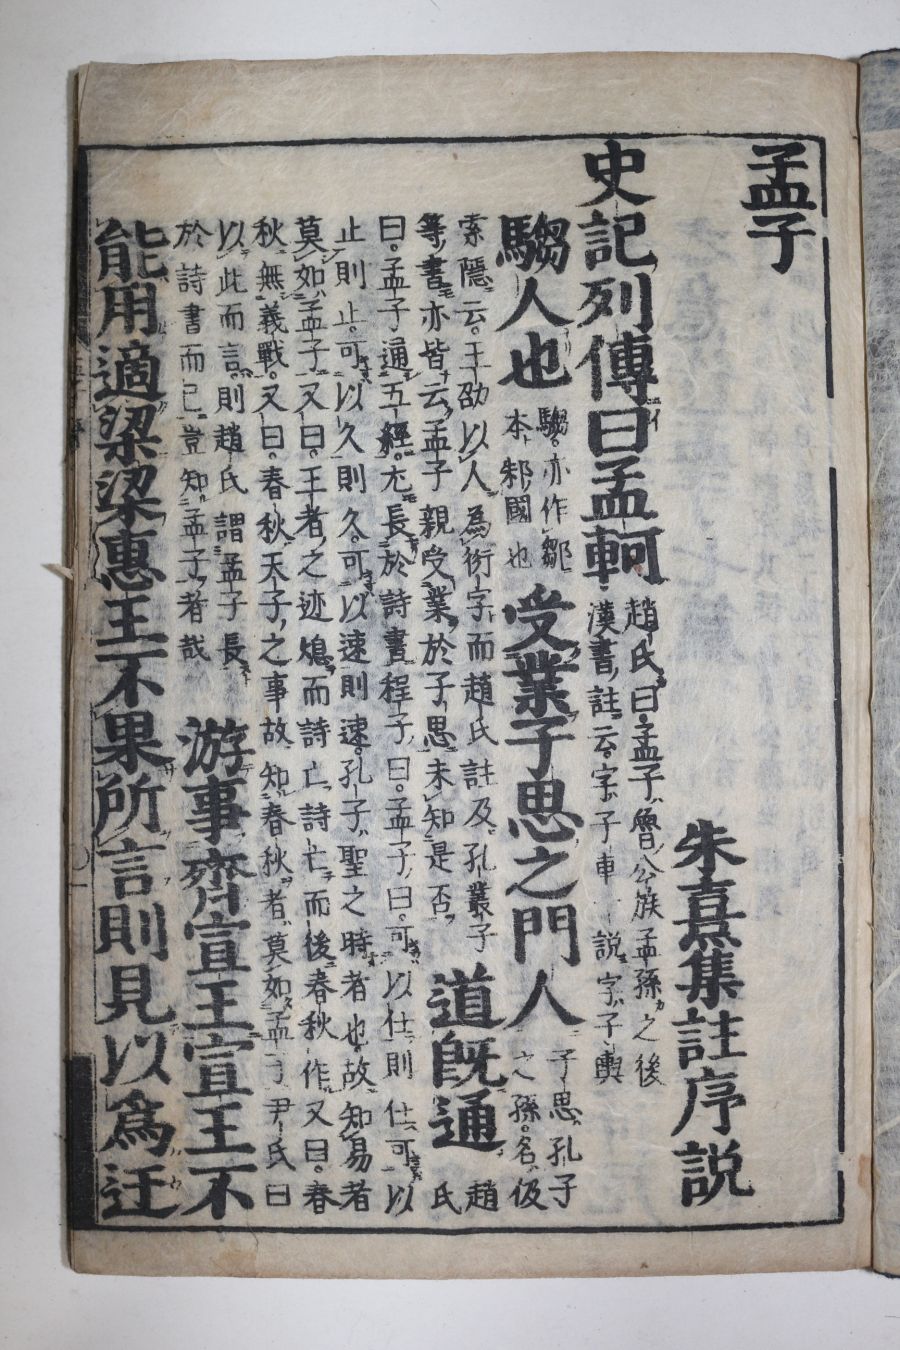 孟子
朱熹集註序説
史記列傳曰孟軻
趙氏曰孟子魯公族孟孫之後
漢書註云。字子車 説字子輿
騶人也
騶。亦作鄒
本邾國也
受業子思之門人
子思。孔子
之孫。名伋
索隱云。王劭以人為衍字。而趙氏註及孔叢子
等書亦皆云孟子親受業於子思未知是否
道既通
趙
氏
曰。孟子通五經。尤長於詩書程子曰。孟子曰。可以仕則仕可以
止則止。可以久則久。可以速則速。孔子聖之時者也故知易者
莫如孟子又曰。王者之迹熄而詩亡詩亡而後春秋作。又曰。春
秋無義戰。又曰。春秋天子之事故知春秋者莫如孟子尹氏曰
以此而言。則趙氏謂孟子長
於詩書而已。豈知孟子者哉
游事齊宣王宣王不
能用適梁梁惠王不果所言則見以爲迂